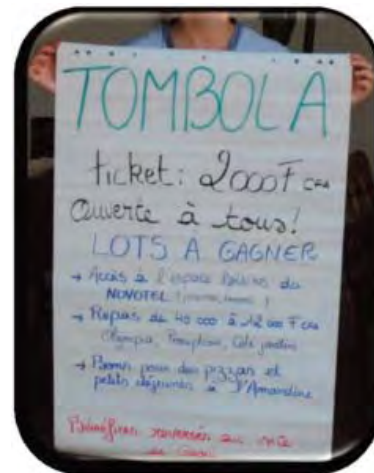 TOMBOLA
ticket: 2000 F CFA
Ouverte à tous!
LOTS A GAGNER
→ Accès à l'espace loisirs du
NOVOTEL (
→ Repas de 40 000 à 12 000 F CFA
Olympia, Côté jardin
→ Bons pour des pizzas et
petits déjeuners à l'Amandine
Bénéfices reversés au